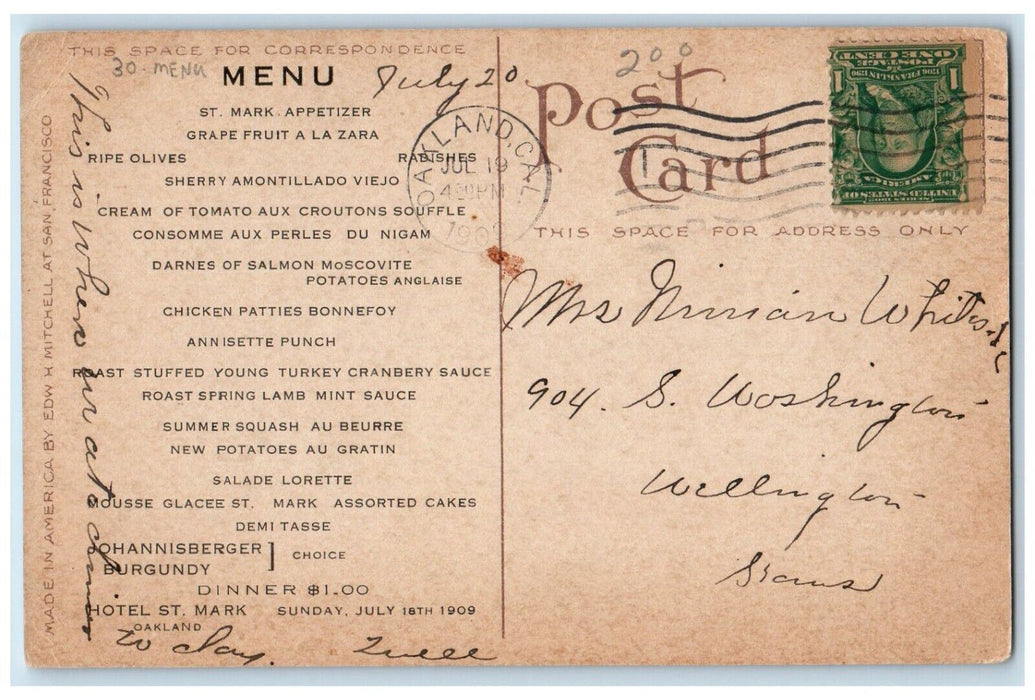 THIS SPACE FOR CORRESPONDENCE
30 - MENU
MENU
July 20
ST. MARK APPETIZER
GRAPE FRUIT A LA ZARA
RIPE OLIVES RADISHES
SHERRY AMONTILLADO VIEJO
CREAM OF TOMATO AUX CROUTONS SOUFFLE
CONSOMME AUX PERLES DU NIGAM
DARNES OF SALMON MOSCOVITE
POTATOES ANGLAISE
CHICKEN PATTIES BONNEFOY
ANNISETTE PUNCH
ROAST STUFFED YOUNG TURKEY CRANBERY SAUCE
ROAST SPRING LAMB MINT SAUCE
SUMMER SQUASH AU BEURRE
NEW POTATOES AU GRATIN
SALADE LORETTE
MOUSSE GLACEE ST. MARK ASSORTED CAKES
DEMI TASSE
JOHANNISBERGER
BURGUNDY
] CHOICE
DINNER $1.00
HOTEL ST. MARK SUNDAY, JULY 18TH 1909
OAKLAND
This is where we ate dinner
to day.
MADE IN AMERICA BY EDW H MITCHELL AT SAN FRANCISCO
OAKLAND, CAL.
JUL 19
4 30 PM
1909
200
Post
Card
THIS SPACE FOR ADDRESS ONLY
ONE CENT
POSTAGE
1706 FRANKLIN 1790
1 1
SERIES 1902
UNITED STATES OF
AMERICA
Mrs
904. S. Washington
Wellington